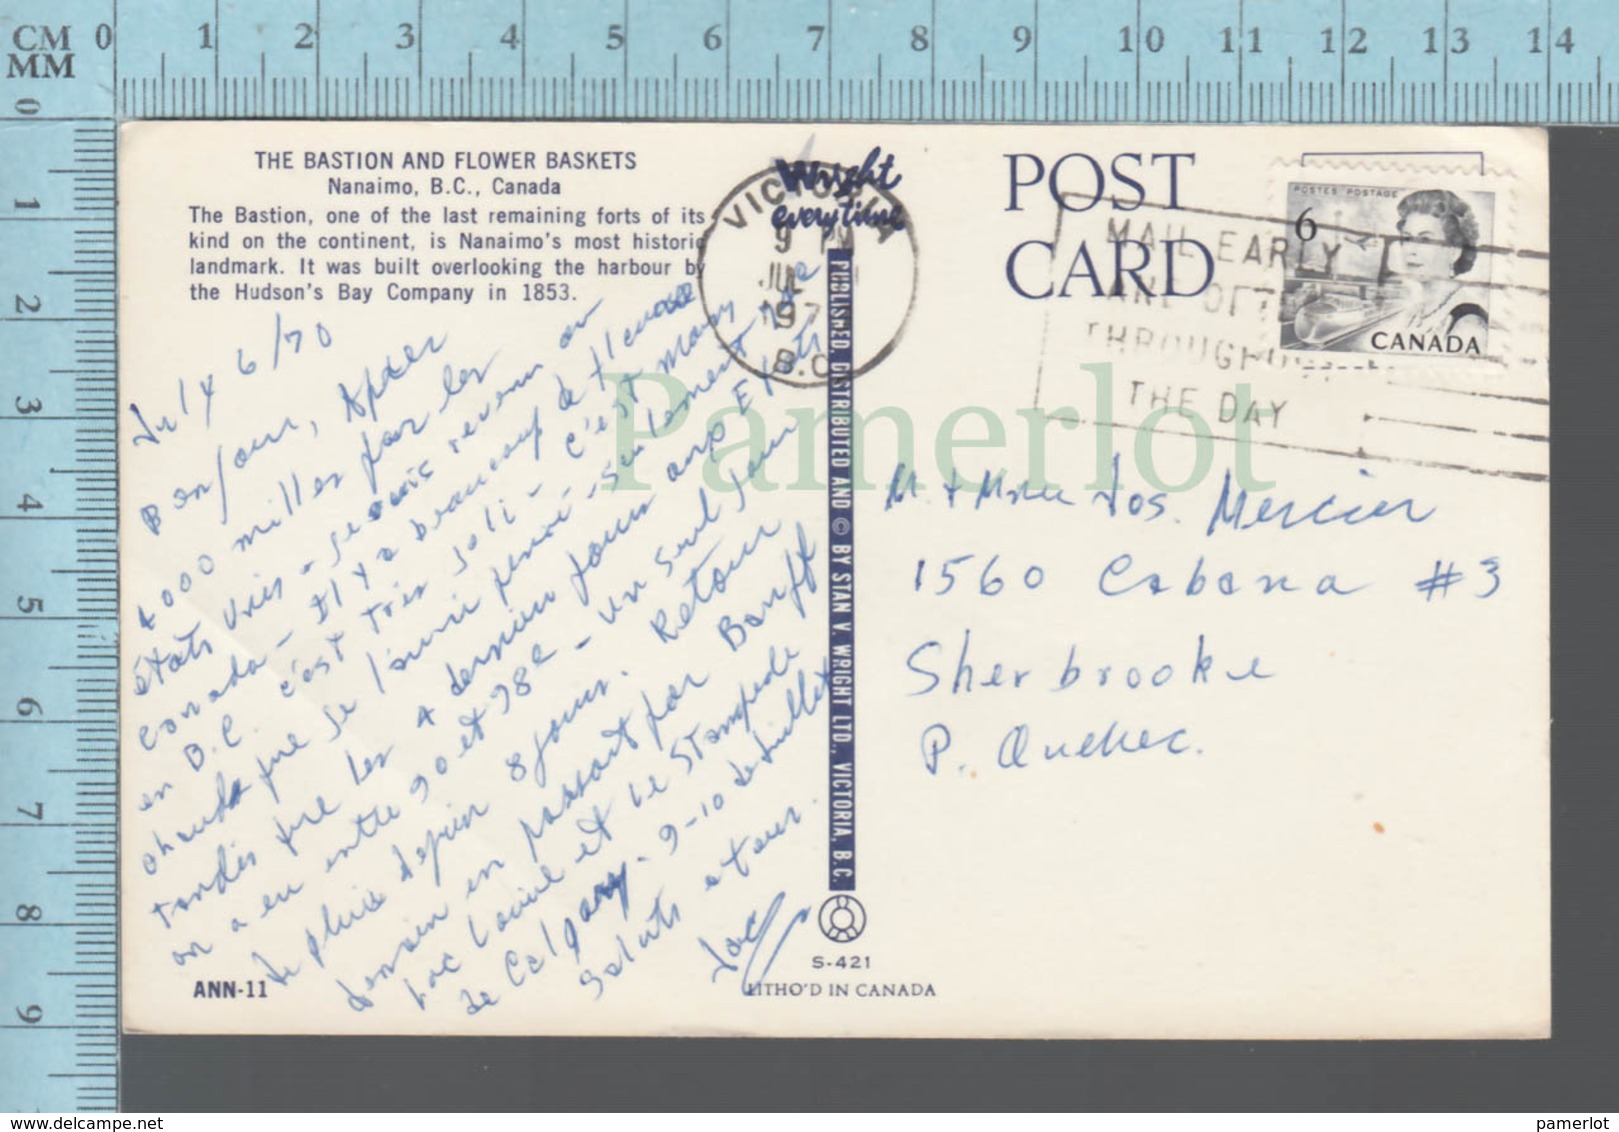 CM 0 1 2 3 4 5 6 7 8 9 10 11 12 13 14
MM
0
1
2
3
4
5
6
7
8
9
THE BASTION AND FLOWER BASKETS
Nanaimo, B.C., Canada
The Bastion, one of the last remaining forts of its
kind on the continent, is Nanaimo's most historic
landmark. It was built overlooking the harbour by
the Hudson's Bay Company in 1853.
July 6/70
Bonjour, Après
4000 milles par les
États Unis - je suis revenu au
Canada - Il y a beaucoup de fleurs
en B.C. c'est très joli - c'est moins
chaud que je l'aurai pensé - seulement
tandis que les 4 derniers jours aux États
on a eu entre 90 et 98° - un seul jour
de pluie depuis 8 jours. Retour
demain en passant par Banff
Lac Louise et le Stampede
de Calgary - 9-10 de Juillet
Saluts à tous.
Jac
ANN-11
Wright
everytime
VICTORIA
9 PM
JUL
197
B.C.
PUBLISHED, DISTRIBUTED AND © BY STAN V. WRIGHT LTD., VICTORIA, B.C.
S-421
LITHO'D IN CANADA
POST
CARD
MAIL EARLY
AND OFTEN
THROUGHOUT
THE DAY
POSTES POSTAGE
6
CANADA
M. & Mme Jos. Mercier
1560 Cabana #3
Sherbrooke
P. Quebec.
Pamerlot
www.delcampe.net
pamerlot